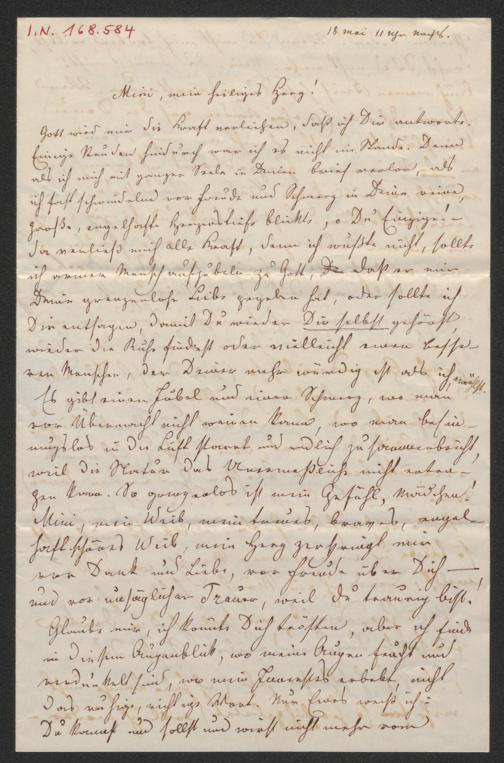 I.N. 168.584
18 Mai 11 Uhr Nachts.
Mini, mein heiliges Herz!
Gott wird mir die Kraft verleihen, daß ich Dir antworte.
Einige Stunden hindurch war ich es nicht im Stande. Denn
als ich mich mit ganzer Seele in Deinen Brief verlor, als
ich fast schwindelnd vor Freude und Schmerz in Deine reine,
große, engelhafte Herzenstiefe blickte, o Du Einzige! –
da verließ mich alle Kraft, denn ich wußte nicht, sollte
ich armer Mensch aufjubeln zu Gott, daß er mir
Deine grenzenlose Liebe gegeben hat, oder sollte ich
Dir entsagen, damit Du wieder Dir selbst gehörst,
wieder die Ruhe findest oder vielleicht einen besse-
ren Menschen, der Deiner mehr würdig ist als ich
Es gibt einen Jubel und einen Schmerz, wo man
vor Übermacht nicht weinen kann, wo man besin-
nungslos in die Luft starret und endlich zusammenbricht,
weil die Natur das Unermeßliche nicht ertra-
gen kann. So grenzenlos ist mein Gefühl, Mädchen!
Mini, mein Weib, mein treues, braves, engel-
haft schönes Weib, mein Herz zerspringt mir
vor Dank und Liebe, vor Freude über Dich —
und vor unsäglicher Trauer, weil Du traurig bist.
Glaube mir, ich könnte Dich trösten, aber ich finde
in diesem Augenblick, wo meine Augen feucht und
verdunkelt sind, wo mein Innerstes erbebt, nicht
das ruhige, richtige Wort. Nur Eines weiß ich:
Du kannst und sollst und wirst nicht mehr vom